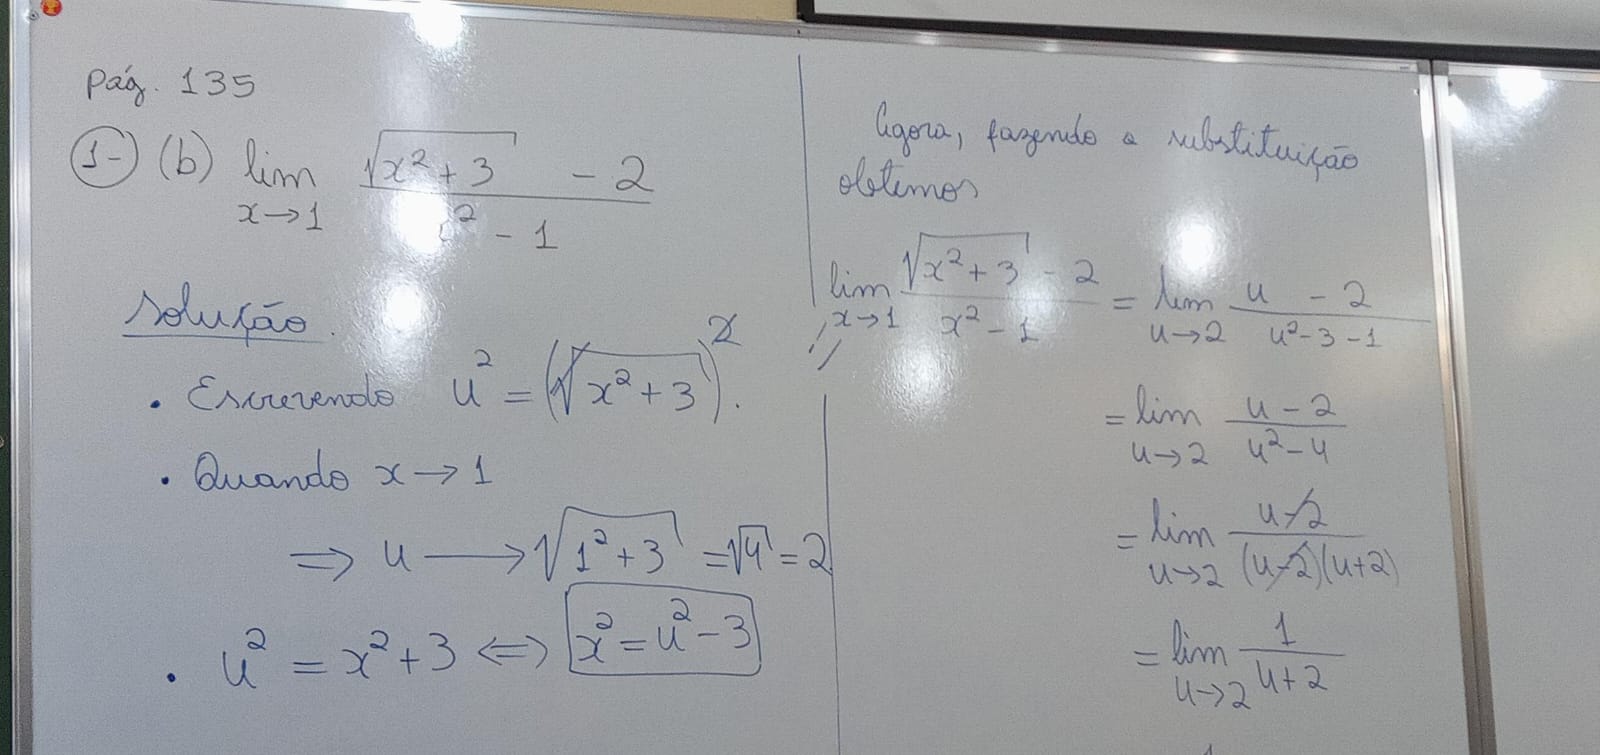 pág. 135
1-) (b) lim x→1 (√(x²+3) - 2)/(x² - 1)
Solução.
• Escrevendo u² = (√(x²+3))².
• Quando x→1
⇒ u ⟶ √(1²+3) = √4 = 2
• u² = x²+3 ⇔ x² = u² - 3
Agora, fazendo a substituição
obtemos
lim x→1 (√(x²+3) - 2)/(x² - 1) = lim u→2 (u - 2)/(u² - 3 - 1)
= lim u→2 (u - 2)/(u² - 4)
= lim u→2 (u - 2)/((u - 2)(u+2))
= lim u→2 1/(u+2)